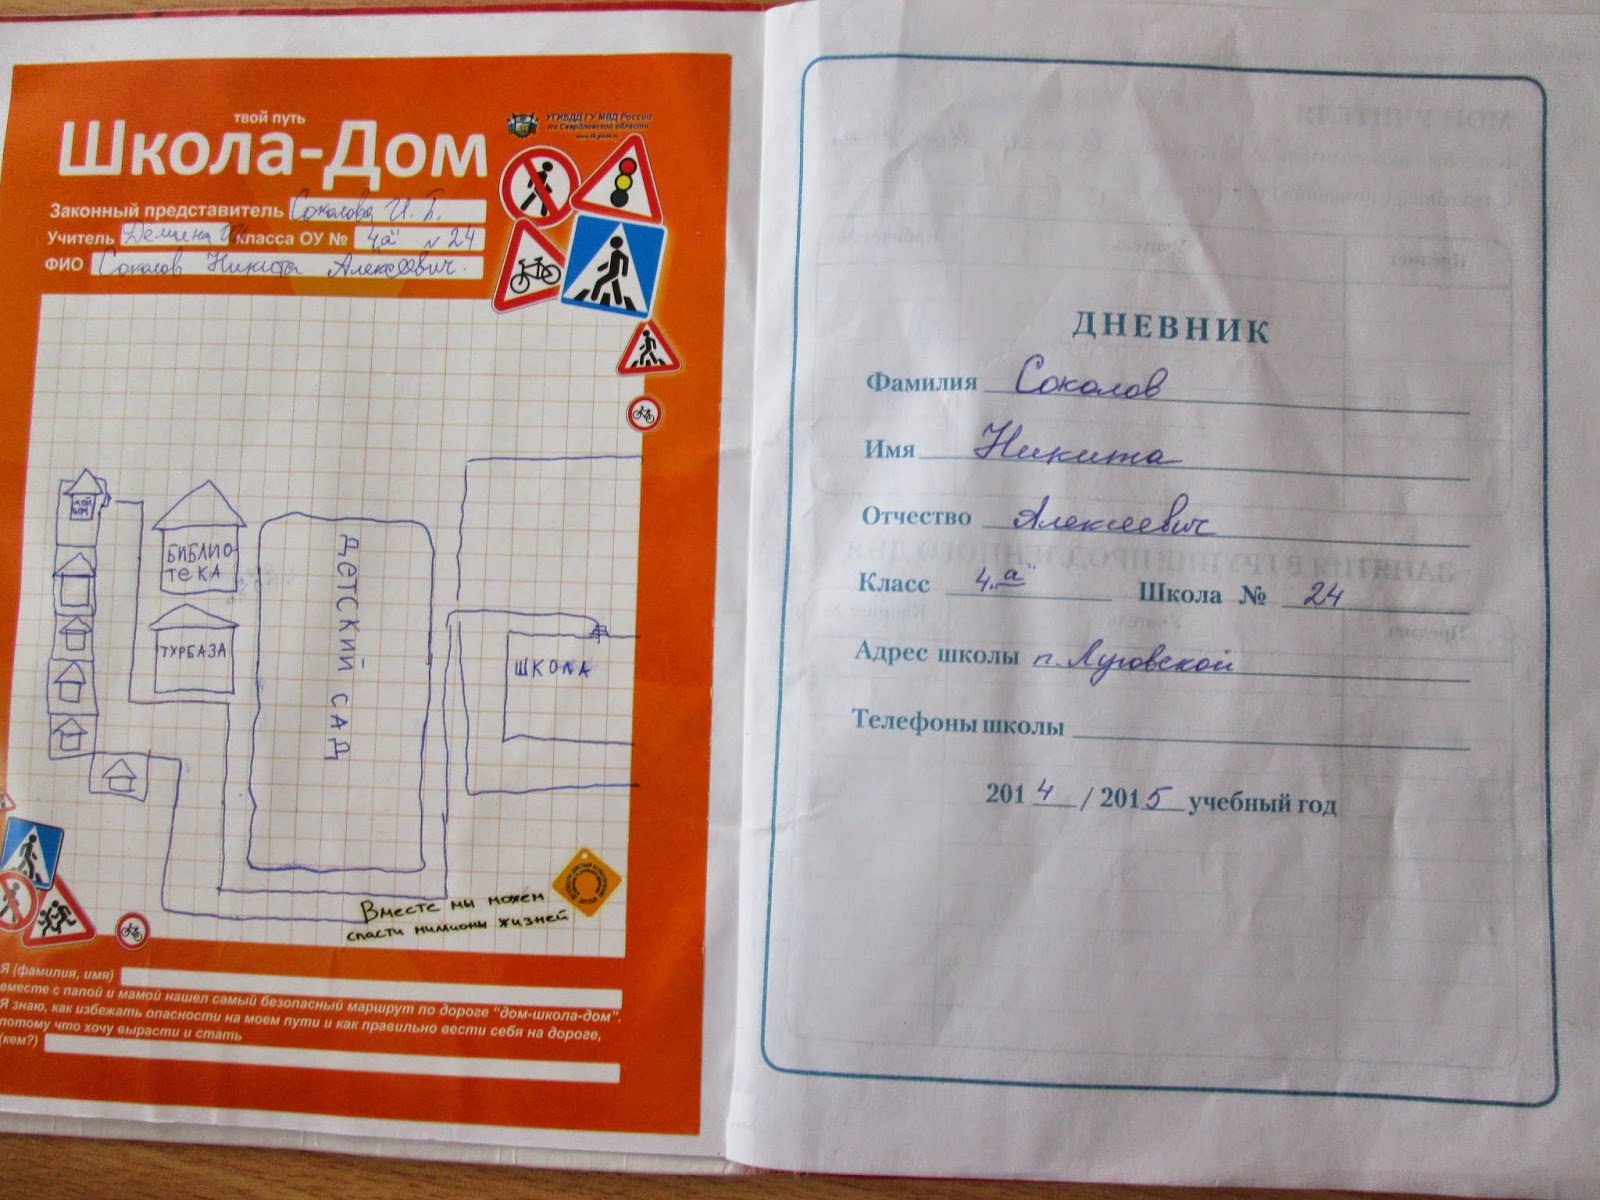 твой путь
Школа-Дом
УГИБДД ГУ МВД России
по Свердловской области
Законный представитель Соколова И. Б.
Учитель Демина класса ОУ № 4„а" №24
ФИО Соколов Никита Алексеевич.
мой
дом
БИБЛИО-
ТЕКА
ТУРБАЗА
ДЕТСКИЙ САД
ШКОЛА
Вместе мы можем
спасти миллионы жизней
Я (фамилия, имя)
вместе с папой и мамой нашел самый безопасный маршрут по дороге "дом-школа-дом".
Я знаю, как избежать опасности на моем пути и как правильно вести себя на дороге,
потому что хочу вырасти и стать
(кем?)
ДНЕВНИК
Фамилия Соколов
Имя Никита
Отчество Алексеевич
Класс 4„а" Школа № 24
Адрес школы п. Луговской
Телефоны школы
2014 / 2015 учебный год